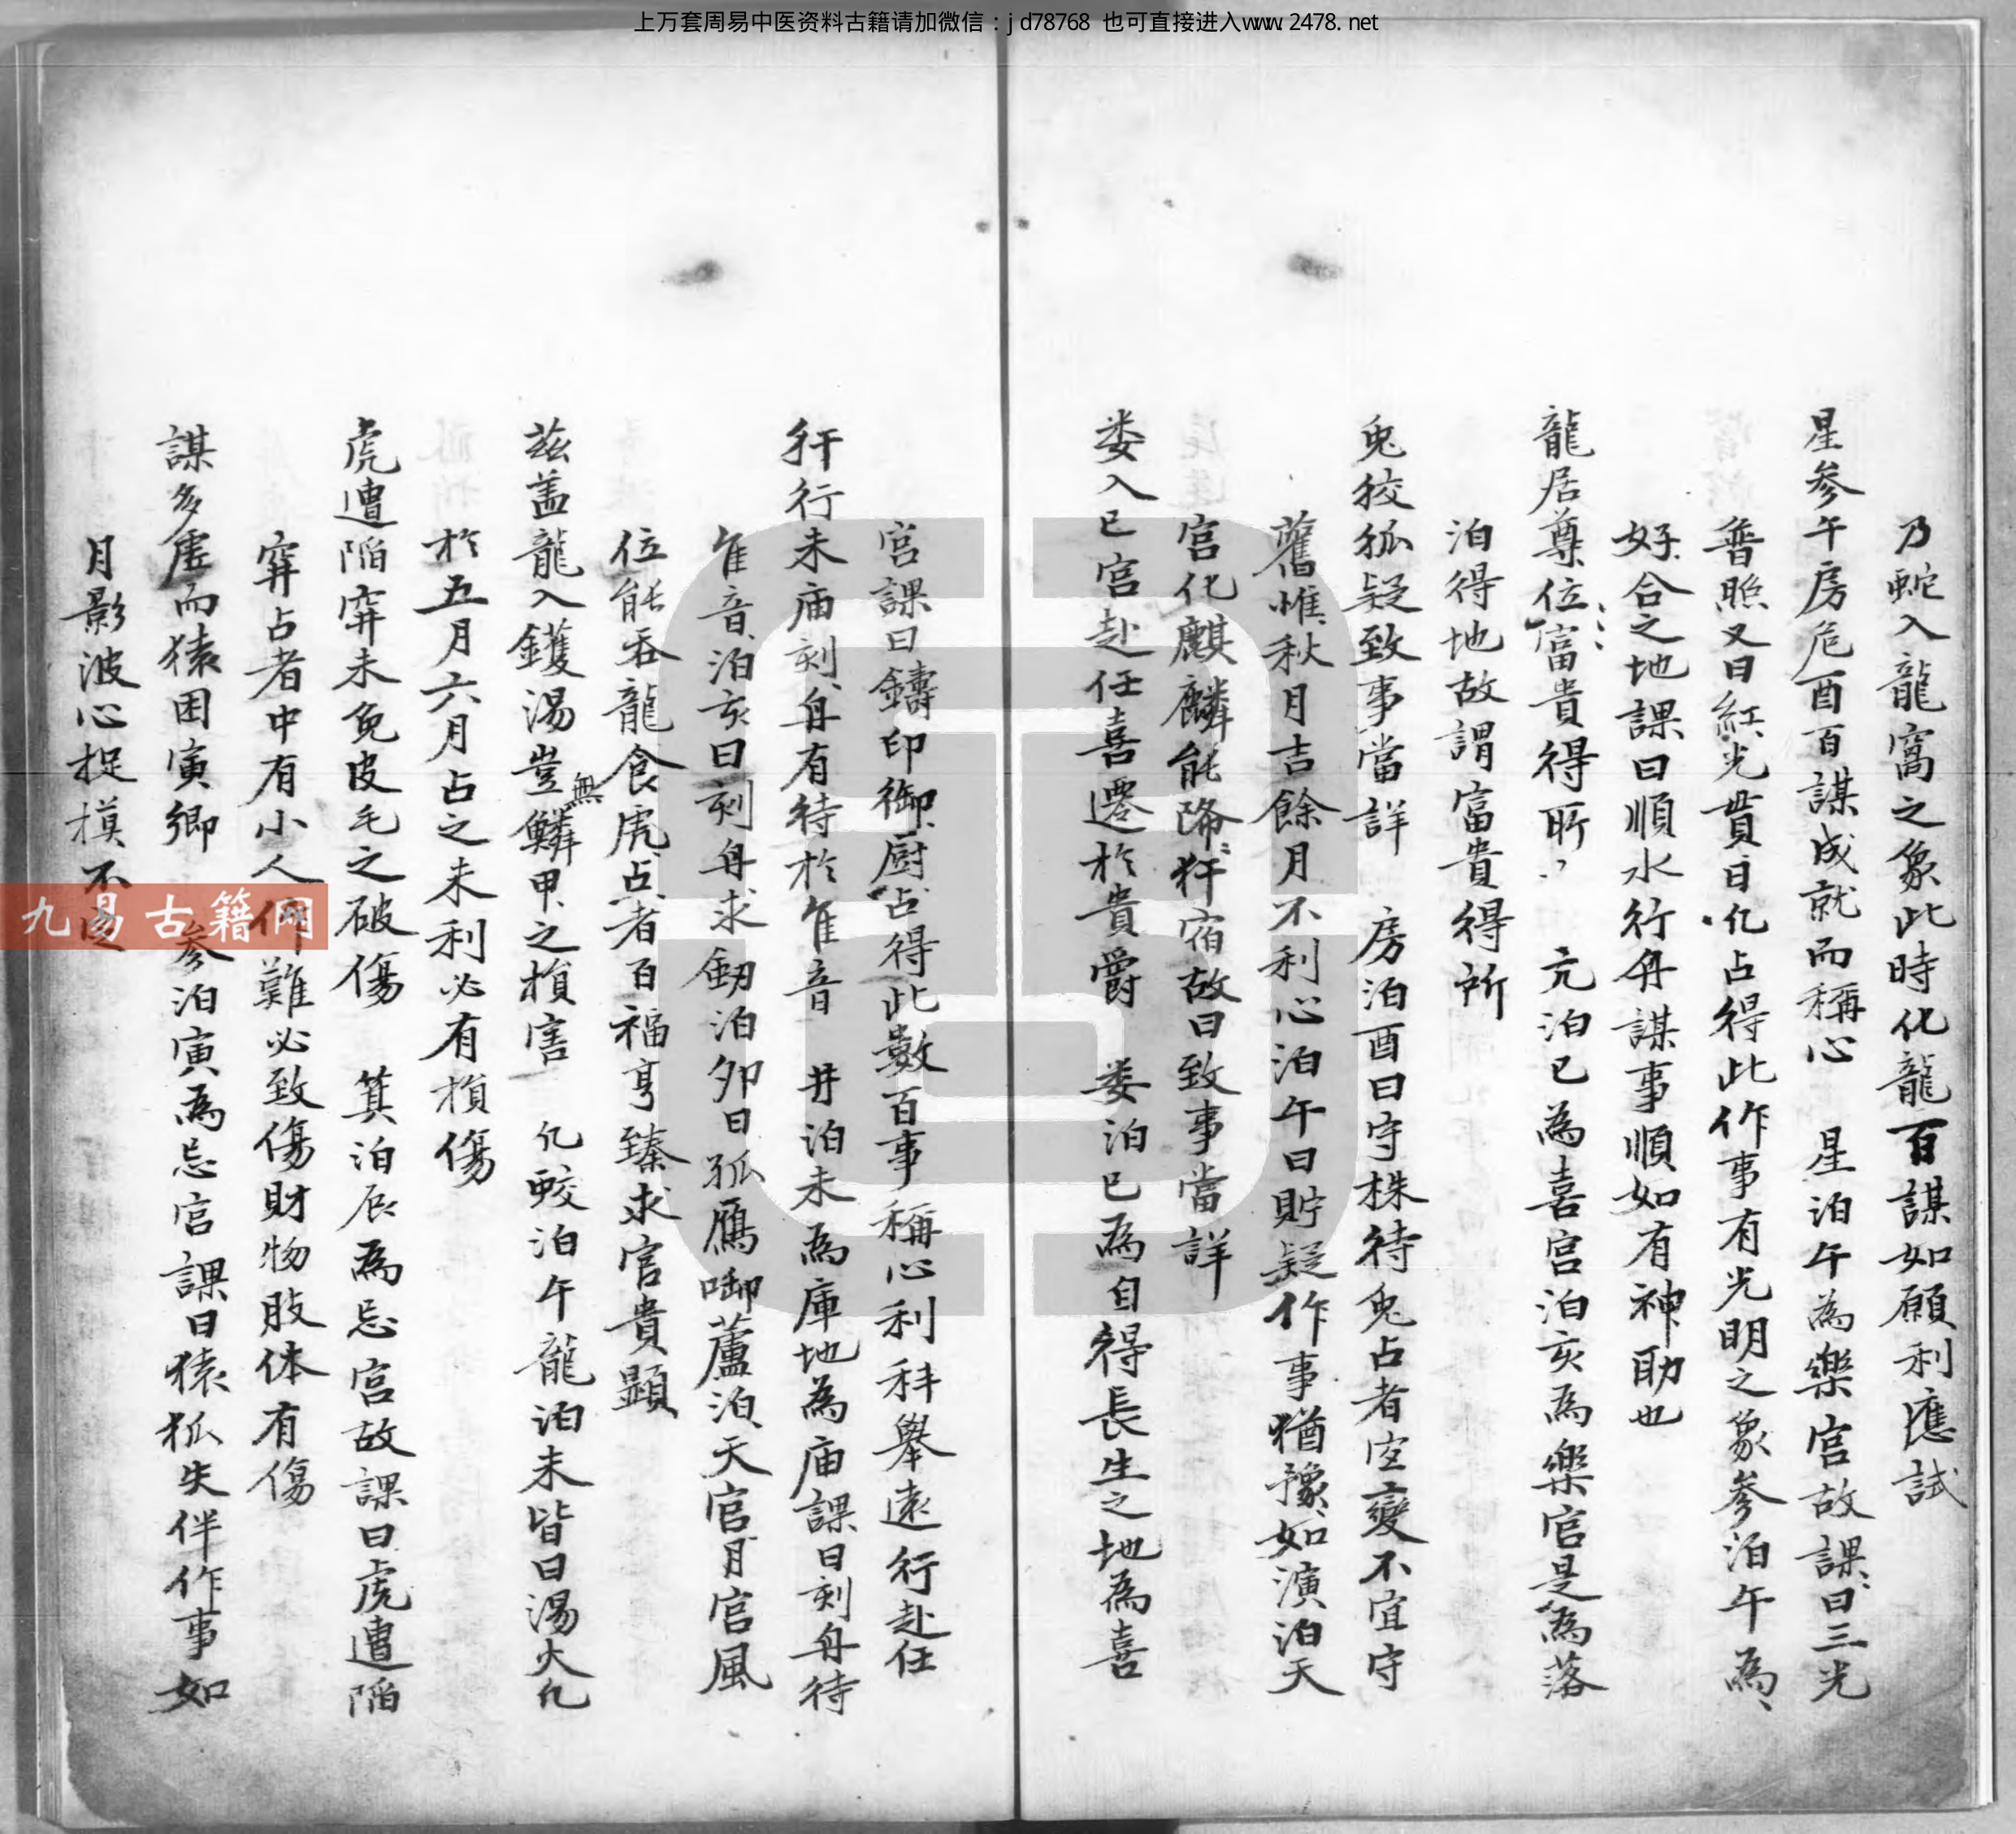 上万套周易中医资料古籍请加微信：jd78768 也可直接进入www.2478.net
乃蛇入龍窩之象此時化龍百謀如願利應試
星参午房危酉百謀成就而稱心 星泊午為樂官故課曰三光
普照又曰紅光貫日化占得此作事有光明之象参泊午為
好合之地課曰順水行舟謀事順如有神助也
龍居尊位富貴得所 亢泊巳為喜宫泊亥為樂官是為落
泊得地故謂富貴得所
兔狡狐疑致事當詳 房泊酉曰守株待兔占者空變不宜守
舊惟秋月吉餘月不利心泊午曰貯疑作事猶豫如演泊天
宮化麒麟能降犴宿故曰致事當詳
婁入巳宮赴任喜遷於貴爵 婁泊巳為自得長生之地為喜
宮課曰鑄印御厨占得此數百事稱心利科舉遠行赴任
犴行未庙刻舟有待於隹音 井泊未為庫地為庙課曰刻舟待
隹音泊亥曰刻舟求劒泊夘曰孤鴈啣蘆泊天官月官風
位能吞龍食虎占者百福亨臻求官貴顯
茲盖龍入鑊湯豈無鱗甲之損害 化蛟泊午龍泊未皆曰湯火化
於五月六月占之未利必有損傷
虎遭陷穽未免皮毛之破傷 箕泊辰為忌宫故課曰虎遭陷
穽占者中有小人作難必致傷財物肢体有傷
謀多虚而猿困寅鄉 参泊寅為忌宫課曰猿狐失伴作事如
月影波心捉摸不定
九易古籍网